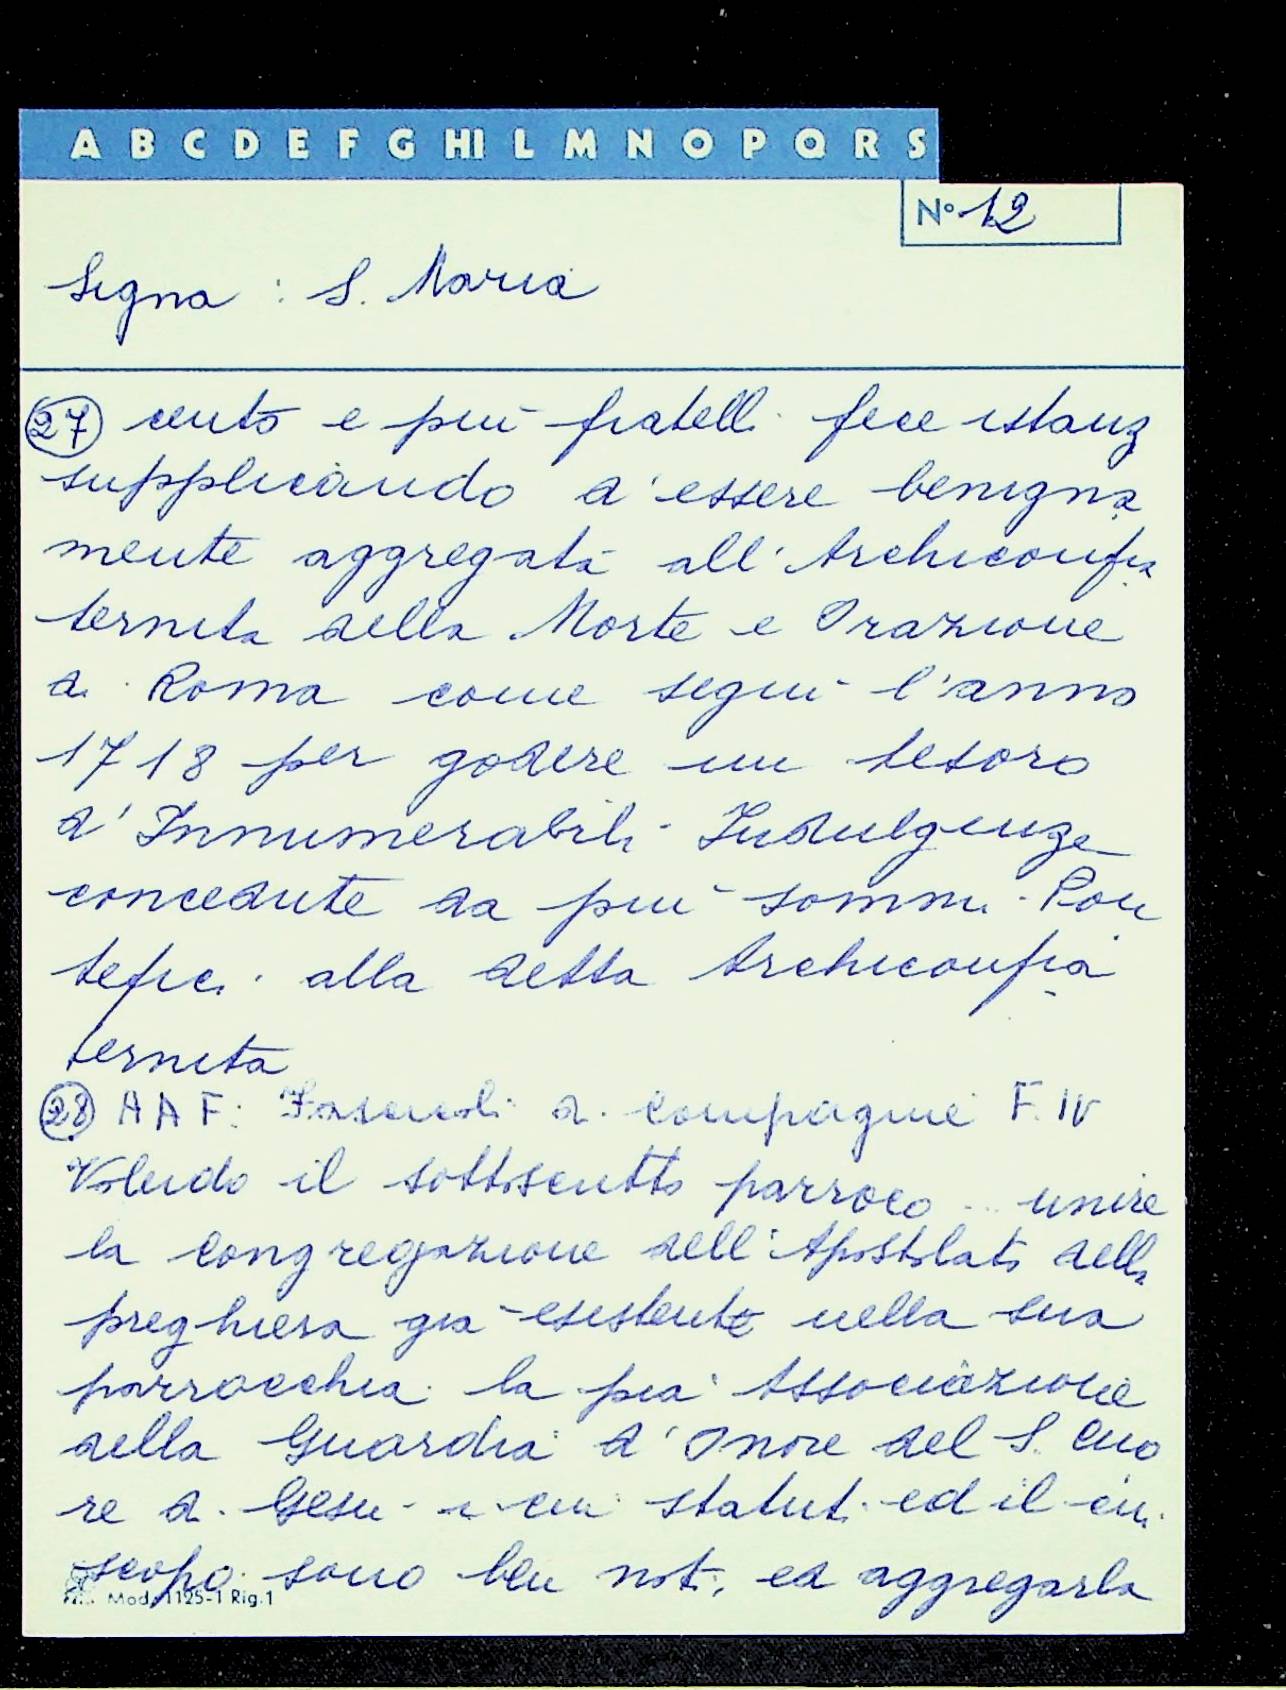 A B C D E F G HI L M N O P Q R S
N° 12
Signa : S. Maria
27 cento e più fratelli fece istanz
supplicando d'essere benigna
mente aggregata all'Archiconfra
ternita della Morte e Orazione
di Roma come seguì l'anno
1718 per godere un tesoro
d'Innumerabili Indulgenze
concedute da più sommi Pon
tefici alla detta Archiconfra
ternita
28 A A F: Fascicoli di compagnie F. IV
Volendo il sottoscritto parroco .. unire
la Congregazione dell'Apostolato della
preghiera già esistente nella sua
parrocchia la pia Associazione
della Guardia d'Onore del S. Cuo
re di Gesù i cui statuti ed il cui
scopo sono ben noti, ed aggregarla
Mod. 1125-1 Rig. 1